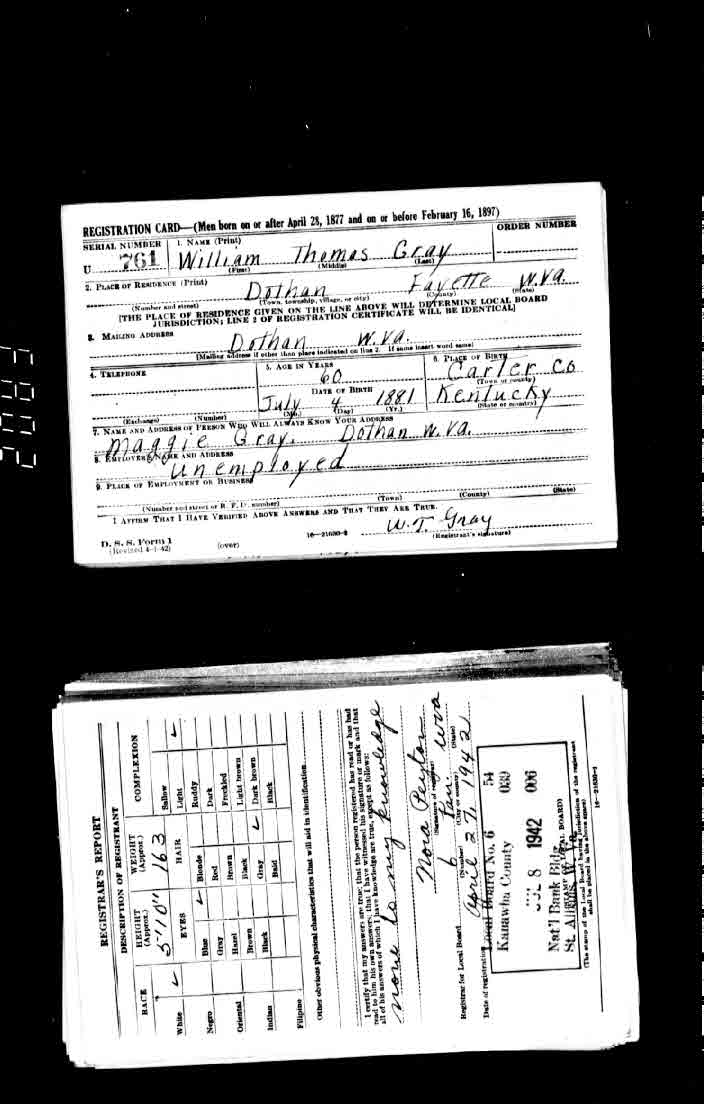 REGISTRATION CARD—(Men born on or after April 28, 1877 and on or before February 16, 1897)
SERIAL NUMBER
1. NAME (Print)
ORDER NUMBER
U 761
William Thomas Gray
(First) (Middle) (Last)
2. PLACE OF RESIDENCE (Print)
Dothan Fayette W.Va.
(Number and street) (Town, township, village, or city) (County) (State)
[THE PLACE OF RESIDENCE GIVEN ON THE LINE ABOVE WILL DETERMINE LOCAL BOARD
JURISDICTION; LINE 2 OF REGISTRATION CERTIFICATE WILL BE IDENTICAL]
3. MAILING ADDRESS
Dothan W.Va.
[Mailing address if other than place indicated on line 2. If same insert word same]
4. TELEPHONE
5. AGE IN YEARS
6. PLACE OF BIRTH
60
Carter Co
(Town or county)
DATE OF BIRTH
July 4 1881
Kentucky
(Exchange) (Number) (Mo.) (Day) (Yr.) (State or country)
7. NAME AND ADDRESS OF PERSON WHO WILL ALWAYS KNOW YOUR ADDRESS
Maggie Gray. Dothan W.Va.
8. EMPLOYER'S NAME AND ADDRESS
Unemployed
9. PLACE OF EMPLOYMENT OR BUSINESS
(Number and street or R. F. D. number) (Town) (County) (State)
I AFFIRM THAT I HAVE VERIFIED ABOVE ANSWERS AND THAT THEY ARE TRUE.
W.T. Gray
D. S. S. Form 1
(Revised 4-1-42) (over) 16—21630-2 (Registrant's signature)
REGISTRAR'S REPORT
DESCRIPTION OF REGISTRANT
RACE
HEIGHT (Approx.)
WEIGHT (Approx.)
COMPLEXION
5'10"
163
Sallow
White ✓
EYES
HAIR
Light ✓
Ruddy
Negro
Blue ✓
Blonde
Dark
Gray
Red
Freckled
Oriental
Hazel
Brown
Light brown
Brown
Black
Dark brown
Indian
Black
Gray ✓
Black
Bald
Filipino
Other obvious physical characteristics that will aid in identification
I certify that my answers are true; that the person registered has read or has had
read to him his own answers; that I have witnessed his signature or mark and that
all of his answers of which I have knowledge are true, except as follows:
none to my knowledge
Nora
(Signature of registrar)
Registrar for Local Board 6
(Number) (City or county) (State)
Date of registration April 27, 1942
Local Board No. 6 54
Kanawha County 039
JUL 8 1942 006
Nat'l Bank Bldg.
St. Albans, W. VA.
(STAMP OF LOCAL BOARD)
(The stamp of the Local Board having jurisdiction of the registrant
shall be placed in the above space)
16—21630-1